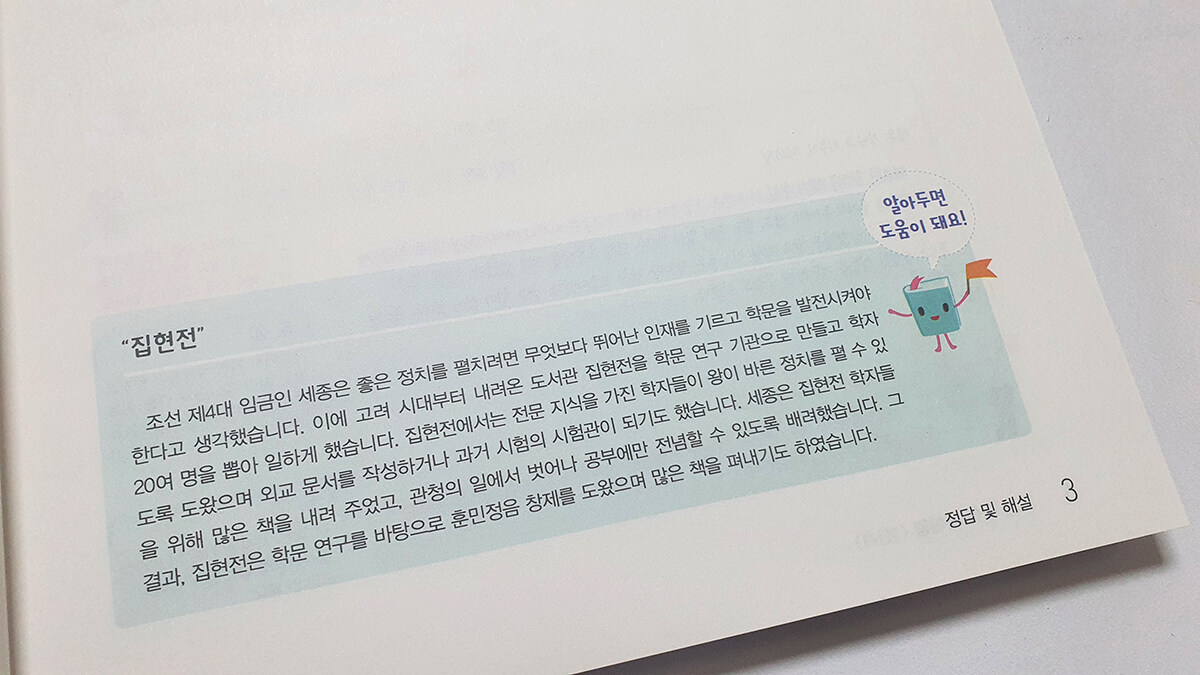 알아두면
도움이 돼요!
“집현전”
조선 제4대 임금인 세종은 좋은 정치를 펼치려면 무엇보다 뛰어난 인재를 기르고 학문을 발전시켜야
한다고 생각했습니다. 이에 고려 시대부터 내려온 도서관 집현전을 학문 연구 기관으로 만들고 학자
20여 명을 뽑아 일하게 했습니다. 집현전에서는 전문 지식을 가진 학자들이 왕이 바른 정치를 펼 수 있
도록 도왔으며 외교 문서를 작성하거나 과거 시험의 시험관이 되기도 했습니다. 세종은 집현전 학자들
을 위해 많은 책을 내려 주었고, 관청의 일에서 벗어나 공부에만 전념할 수 있도록 배려했습니다. 그
결과, 집현전은 학문 연구를 바탕으로 훈민정음 창제를 도왔으며 많은 책을 펴내기도 하였습니다.
정답 및 해설 3